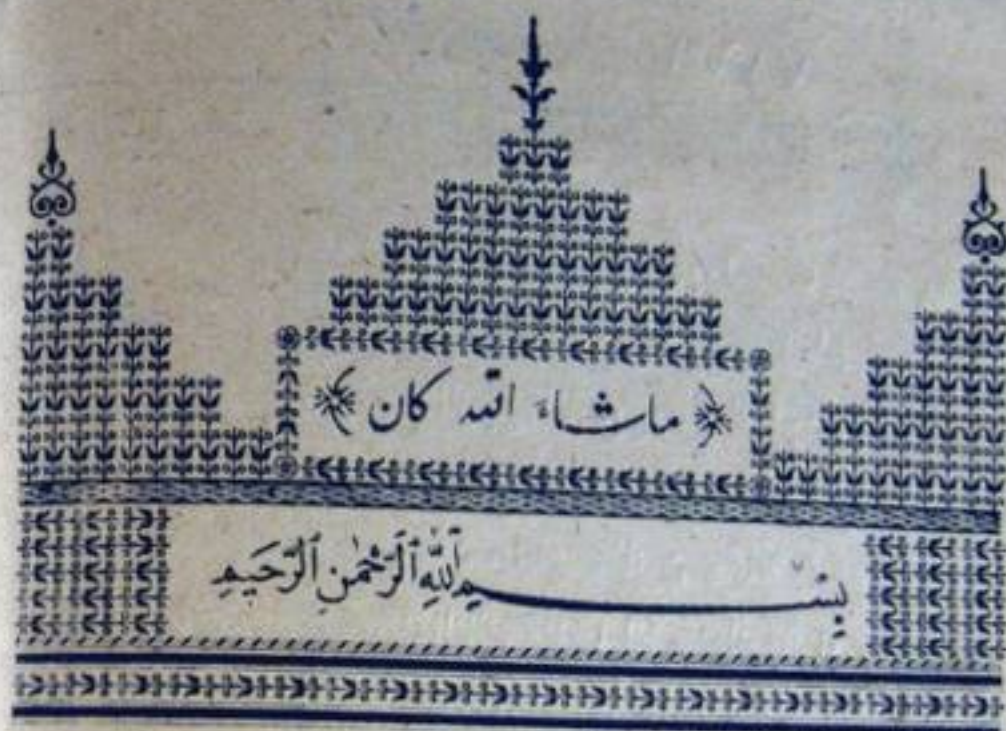 ماشاء الله كان
بِسْمِ ٱللَّهِ ٱلرَّحْمَٰنِ ٱلرَّحِيمِ